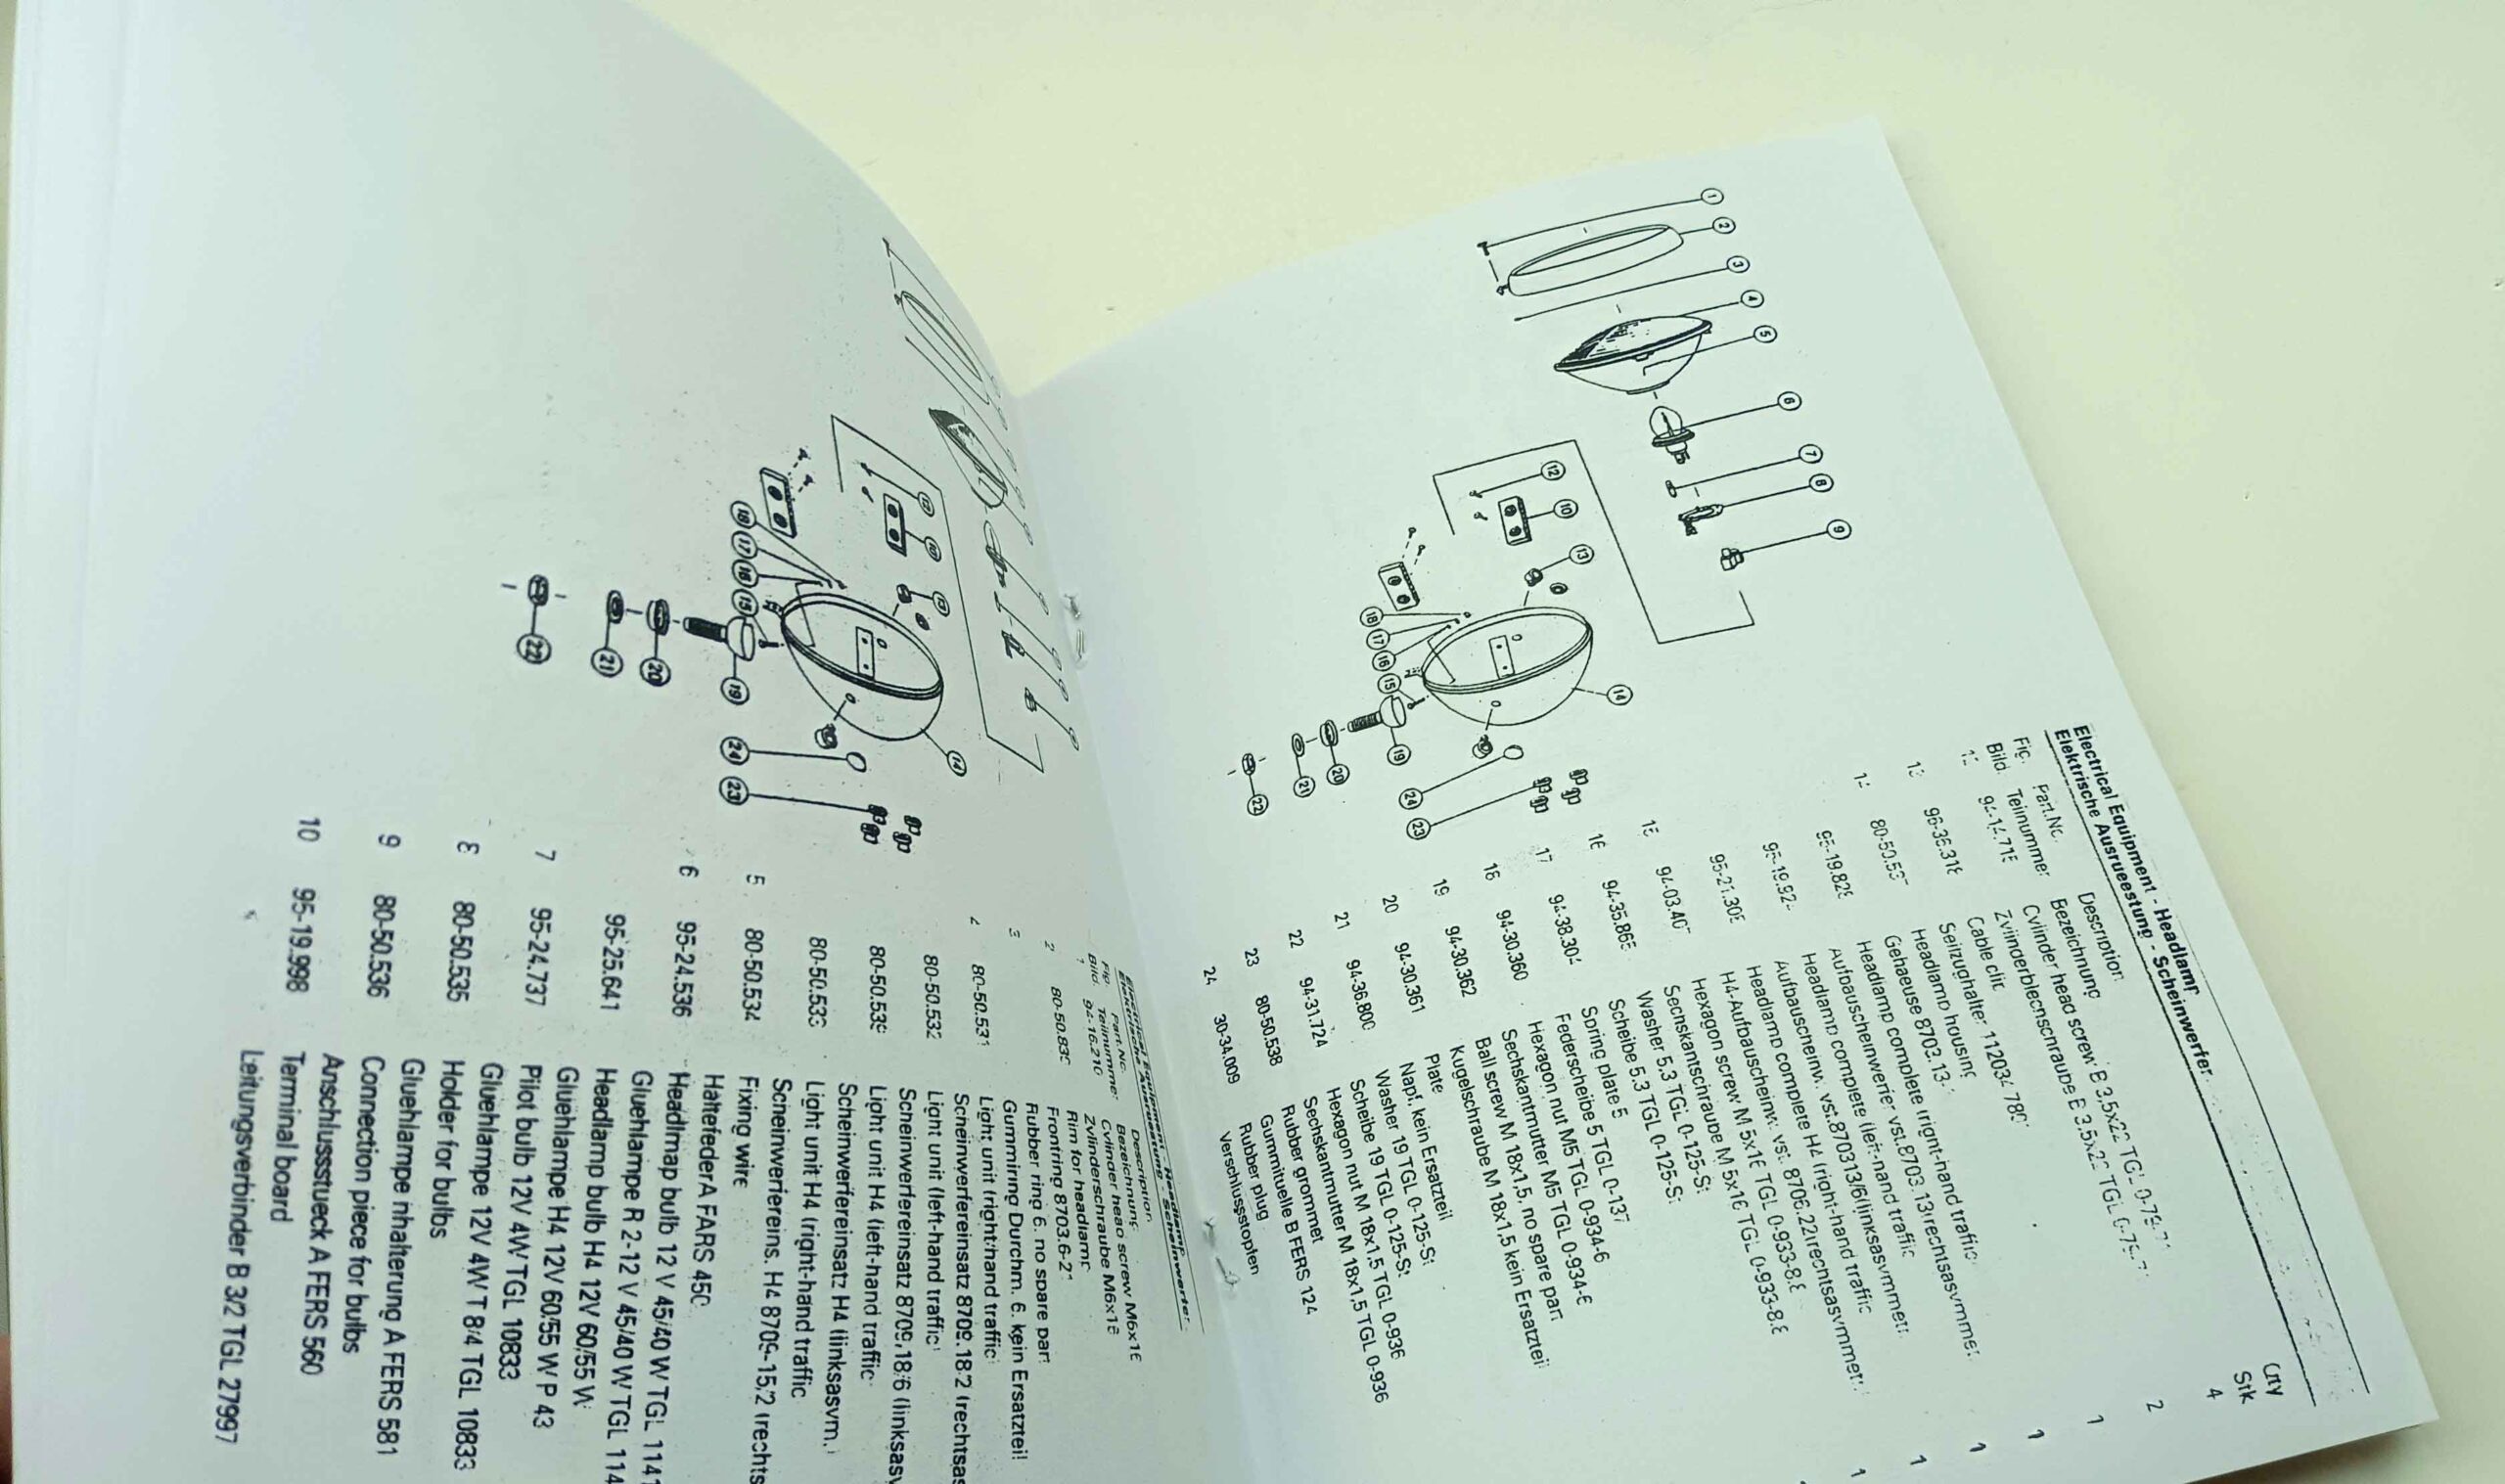 Electrical Equipment - Headlamp
Elektrische Ausruestung - Scheinwerfer
Fig. Part.No. Description
Bild. Teilnummer Bezeichnung
1 94-16.210 Cylinder head screw M6x16
Zylinderschraube M6x16
2 80-50.830 Rim for headlamp
Frontring 8703.6-2
3 Rubber ring 6. no spare part
Gummiring Durchm. 6. kein Ersatzteil
4 80-50.531 Light unit (right-hand traffic)
Scheinwerfereinsatz 8709.18/2 (rechtsas
80-50.532 Light unit (left-hand traffic)
Scheinwerfereinsatz 8709.18/6 (linksas
Light unit H4 (left-hand traffic
Scheinwerfereinsatz H4 (linksasym.)
80-50.533 Light unit H4 (right-hand traffic
Scheinwerfereins. H4 8709-15/2 (rechts
5 80-50.534 Fixing wire
HaltefederA FARS 450
6 95-24.536 Headlmap bulb 12 V 45/40 W TGL 1141
Gluehlampe R 2-12 V 45/40 W TGL 114
95-25.641 Headlamp bulb H4 12V 60/55 W
Gluehlampe H4 12V 60/55 W P 43
7 95-24.737 Pilot bulb 12V 4W TGL 10833
Gluehlampe 12V 4W T 8/4 TGL 10833
8 80-50.535 Holder for bulbs
Gluehlampe nhalterung A FERS 581
9 80-50.536 Connection piece for bulbs
Anschlussstueck A FERS 560
10 95-19.998 Terminal board
Leitungsverbinder B 3/2 TGL 27997
12 10 13 18 17 16 15 14 19 20 21 22 24 23
Electrical Equipment - Headlamp
Elektrische Ausruestung - Scheinwerfer
Fig. Part.No. Description Qty
Bild. Teilnummer Bezeichnung Stk
Cylinder head screw B 3,5x22 TGL 0-79 4
Zylinderblechschraube B 3,5x22 TGL 0-79
Cable clip 2
Seilzughalter
Headlamp housing 1
Gehaeuse 8703.13
Headlamp complete (right-hand traffic 1
Aufbauscheinwerfer vst.8703.13(rechtsasymmetr.
95-19.92 Headlamp complete (left-hand traffic 1
Aufbauscheinw. vst.870313/6(linksasymmetr.
Headlamp complete H4 (right-hand traffic 1
H4-Aufbauscheinw. vst. 8706.22(rechtsasymmetr.
15 Hexagon screw M 5x16 TGL 0-933-8.8 1
Sechskantschraube M 5x16 TGL 0-933-8.8
16 Washer 5.3 TGL 0-125-St
Scheibe 5.3 TGL 0-125-St
17 Spring plate 5
Federscheibe 5 TGL 0-137
18 94-30.360 Hexagon nut M5 TGL 0-934-6
Sechskantmutter M5 TGL 0-934-6
19 94-30.362 Ball screw M 18x1,5, no spare part
Kugelschraube M 18x1,5 kein Ersatzteil
20 94-30.361 Plate
Napf, kein Ersatzteil
21 94-36.800 Washer 19 TGL 0-125-St
Scheibe 19 TGL 0-125-St
22 94-31.724 Hexagon nut M 18x1,5 TGL 0-936
Sechskantmutter M 18x1,5 TGL 0-936
23 80-50.538 Rubber grommet
Gummituelle B FERS 124
24 30-34.009 Rubber plug
Verschlussstopfen
1 2 3 4 5 6 7 8 9 12 10 13 18 17 16 15 14 19 20 21 22 24 23